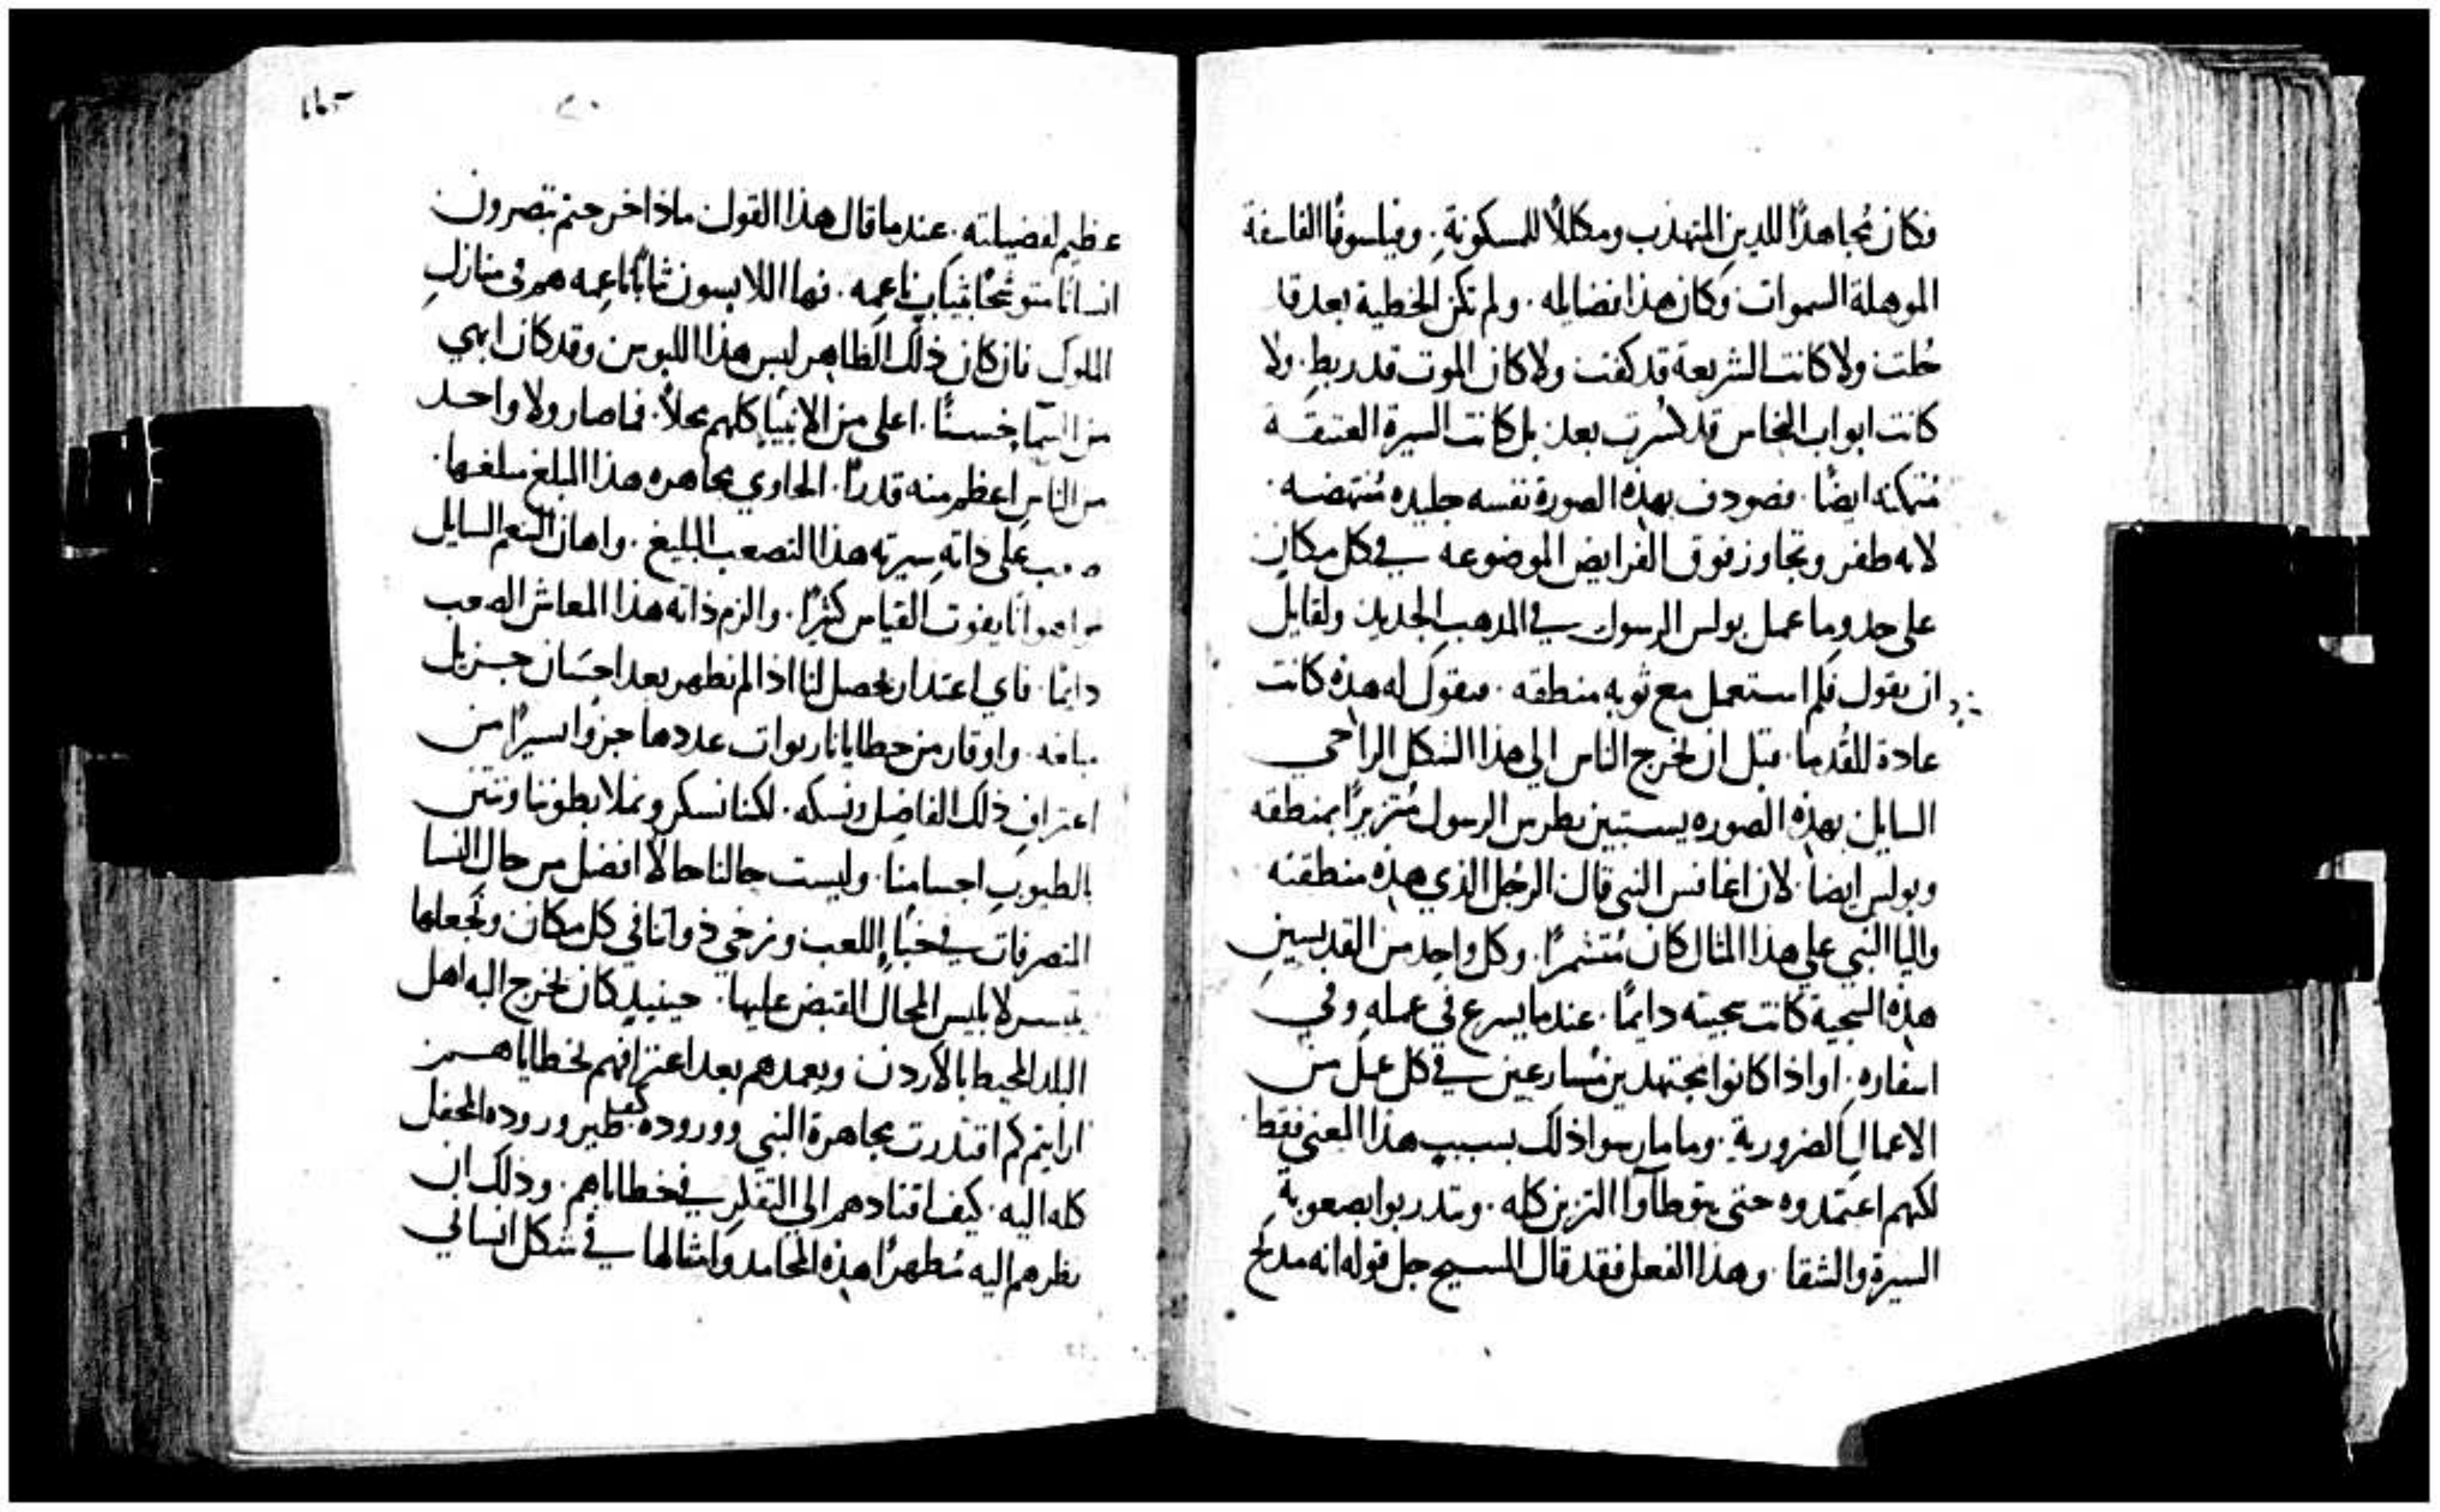 فكان مُجاهدًا للدين المتهدب ومكللاً للمسكونةِ. وفيلسوفًا الفلسفة
الموهلة السموات وكان هذا فضايله. ولم تكن الخطية بعد قد
حُلت ولا كانت الشريعة قد كفت ولا كان الموت قد ربط. ولا
كانت ابواب النحاس قد كُسرت بعد. بل كانت السيرة العتيقة
مُتمكنه ايضًا. فصودف بهذه الصورة نفسه جليده مُنتهضه.
لانه طفر وتجاوز فوق الفرايض الموضوعه في كل مكان
على حذو ما عمل بولس الرسول في المذهب الجديد. ولقايل
ان يقول فلم استعمل مع ثوبه منطقه. فنقول له هذه كانت
عادة للقُدما. قبل ان يخرج الناس الى هذا الشكل الراخي
السايل بهذه الصوره يستبين بطرس الرسول مُتزيرًا بمنطقه
وبولس ايضا. لان اغابس النبى قال الرجُل الذي هذه منطقته
واليا النبي على هذا المثال كان مُتشمرًا. وكل واحد من القديسين
هذه السجية كانت سجيته دايمًا. عندما يسرع في عمله وفي
اسفاره. او اذا كانوا مجتهدين مُسارعين في كل عمل من
الاعمال الضرورية. وما مارسوا ذلك بسبب هذا المعنى فقط
لكنهم اعتمدوه حتى يتوطاوا التزين كله. ويتدربوا بصعوبة
السيرة والشقا. وهذا الفعل فقد قال المسيح جل قوله انه مديح
عظيم لفضيلته. عندما قال هذا القول ماذا خرجتم تبصرون
انسانًا متوشحًا بثياب ناعمه. فها اللابسون ثيابًا ناعمه هم في منازل
الملوك فان كان ذلك الطاهر لبس هذا اللبوس وقد كان ابهي
من السما حسنًا. اعلى من الانبيا كلهم محلاً. فما صار ولا واحد
من الناس اعظم منه قدرًا. الحاوي مجاهره هذا المبلغ مبلغها.
صعب على ذاته سيرته هذا التصعب البليغ. واهان التنعم السايل
هوانًا يفوت القياس كثيرًا. والزم ذاته هذا المعاش الصعب
دايمًا. فاي اعتدار يحصل لنا اذا لم نظهر بعد احسان جزيل
مبلغه. واوقار من خطايانا ربوات عددها جزوًا يسيرًا من
اعتراف ذلك الفاضل ونسكه. لكنا نسكر ونملا بطوننا وننتن
بالطيوب اجسامنا. وليست حالنا حالاً افضل من حال النسا
المتصرفات في خبا اللعب ونرخي ذواتنا في كل مكان ونجعلها
يتيسر لابليس المحال القبض عليها. حينيذٍ كان يخرج اليه اهل
البلد المحيط بالاردن ويعمدهم بعد اعترافهم بخطاياهم
ارايتم كم اقتدرت مجاهرة النبي ووروده كيف طير وروده المحفل
كله اليه. كيف اقتادهم الي التفكر في خطاياهم. وذلك ان
نظرهم اليه مُظهرًا هذه المحامد وامثالها في شكل انساني